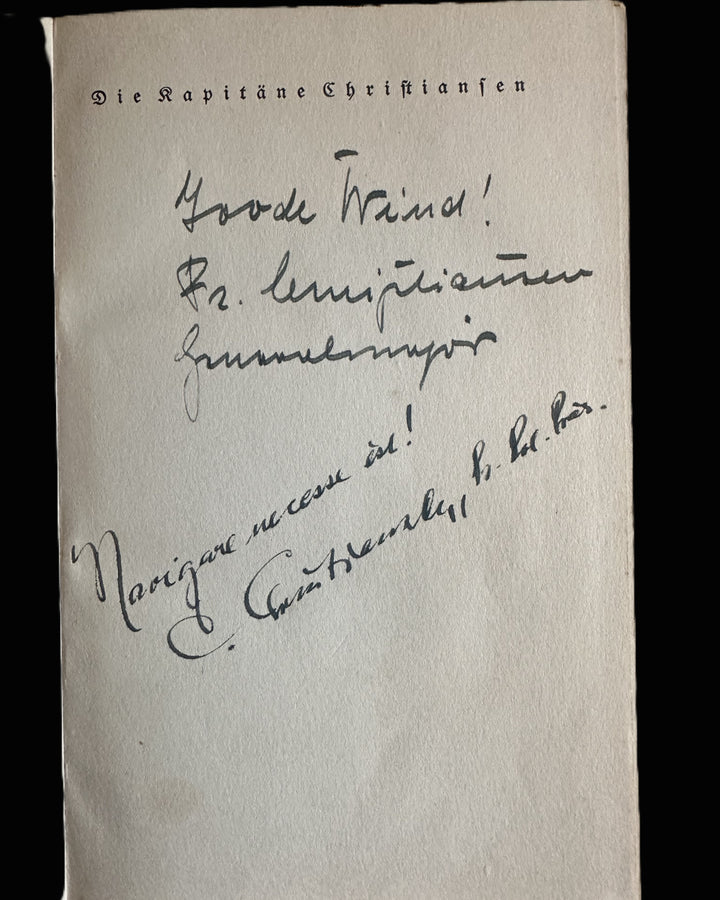 Die Kapitäne Christiansen
Goode Wind!
Fr. Christiansen
Generalmajor
Navigare necesse est!
C. Christiansen, Pol. Präs.